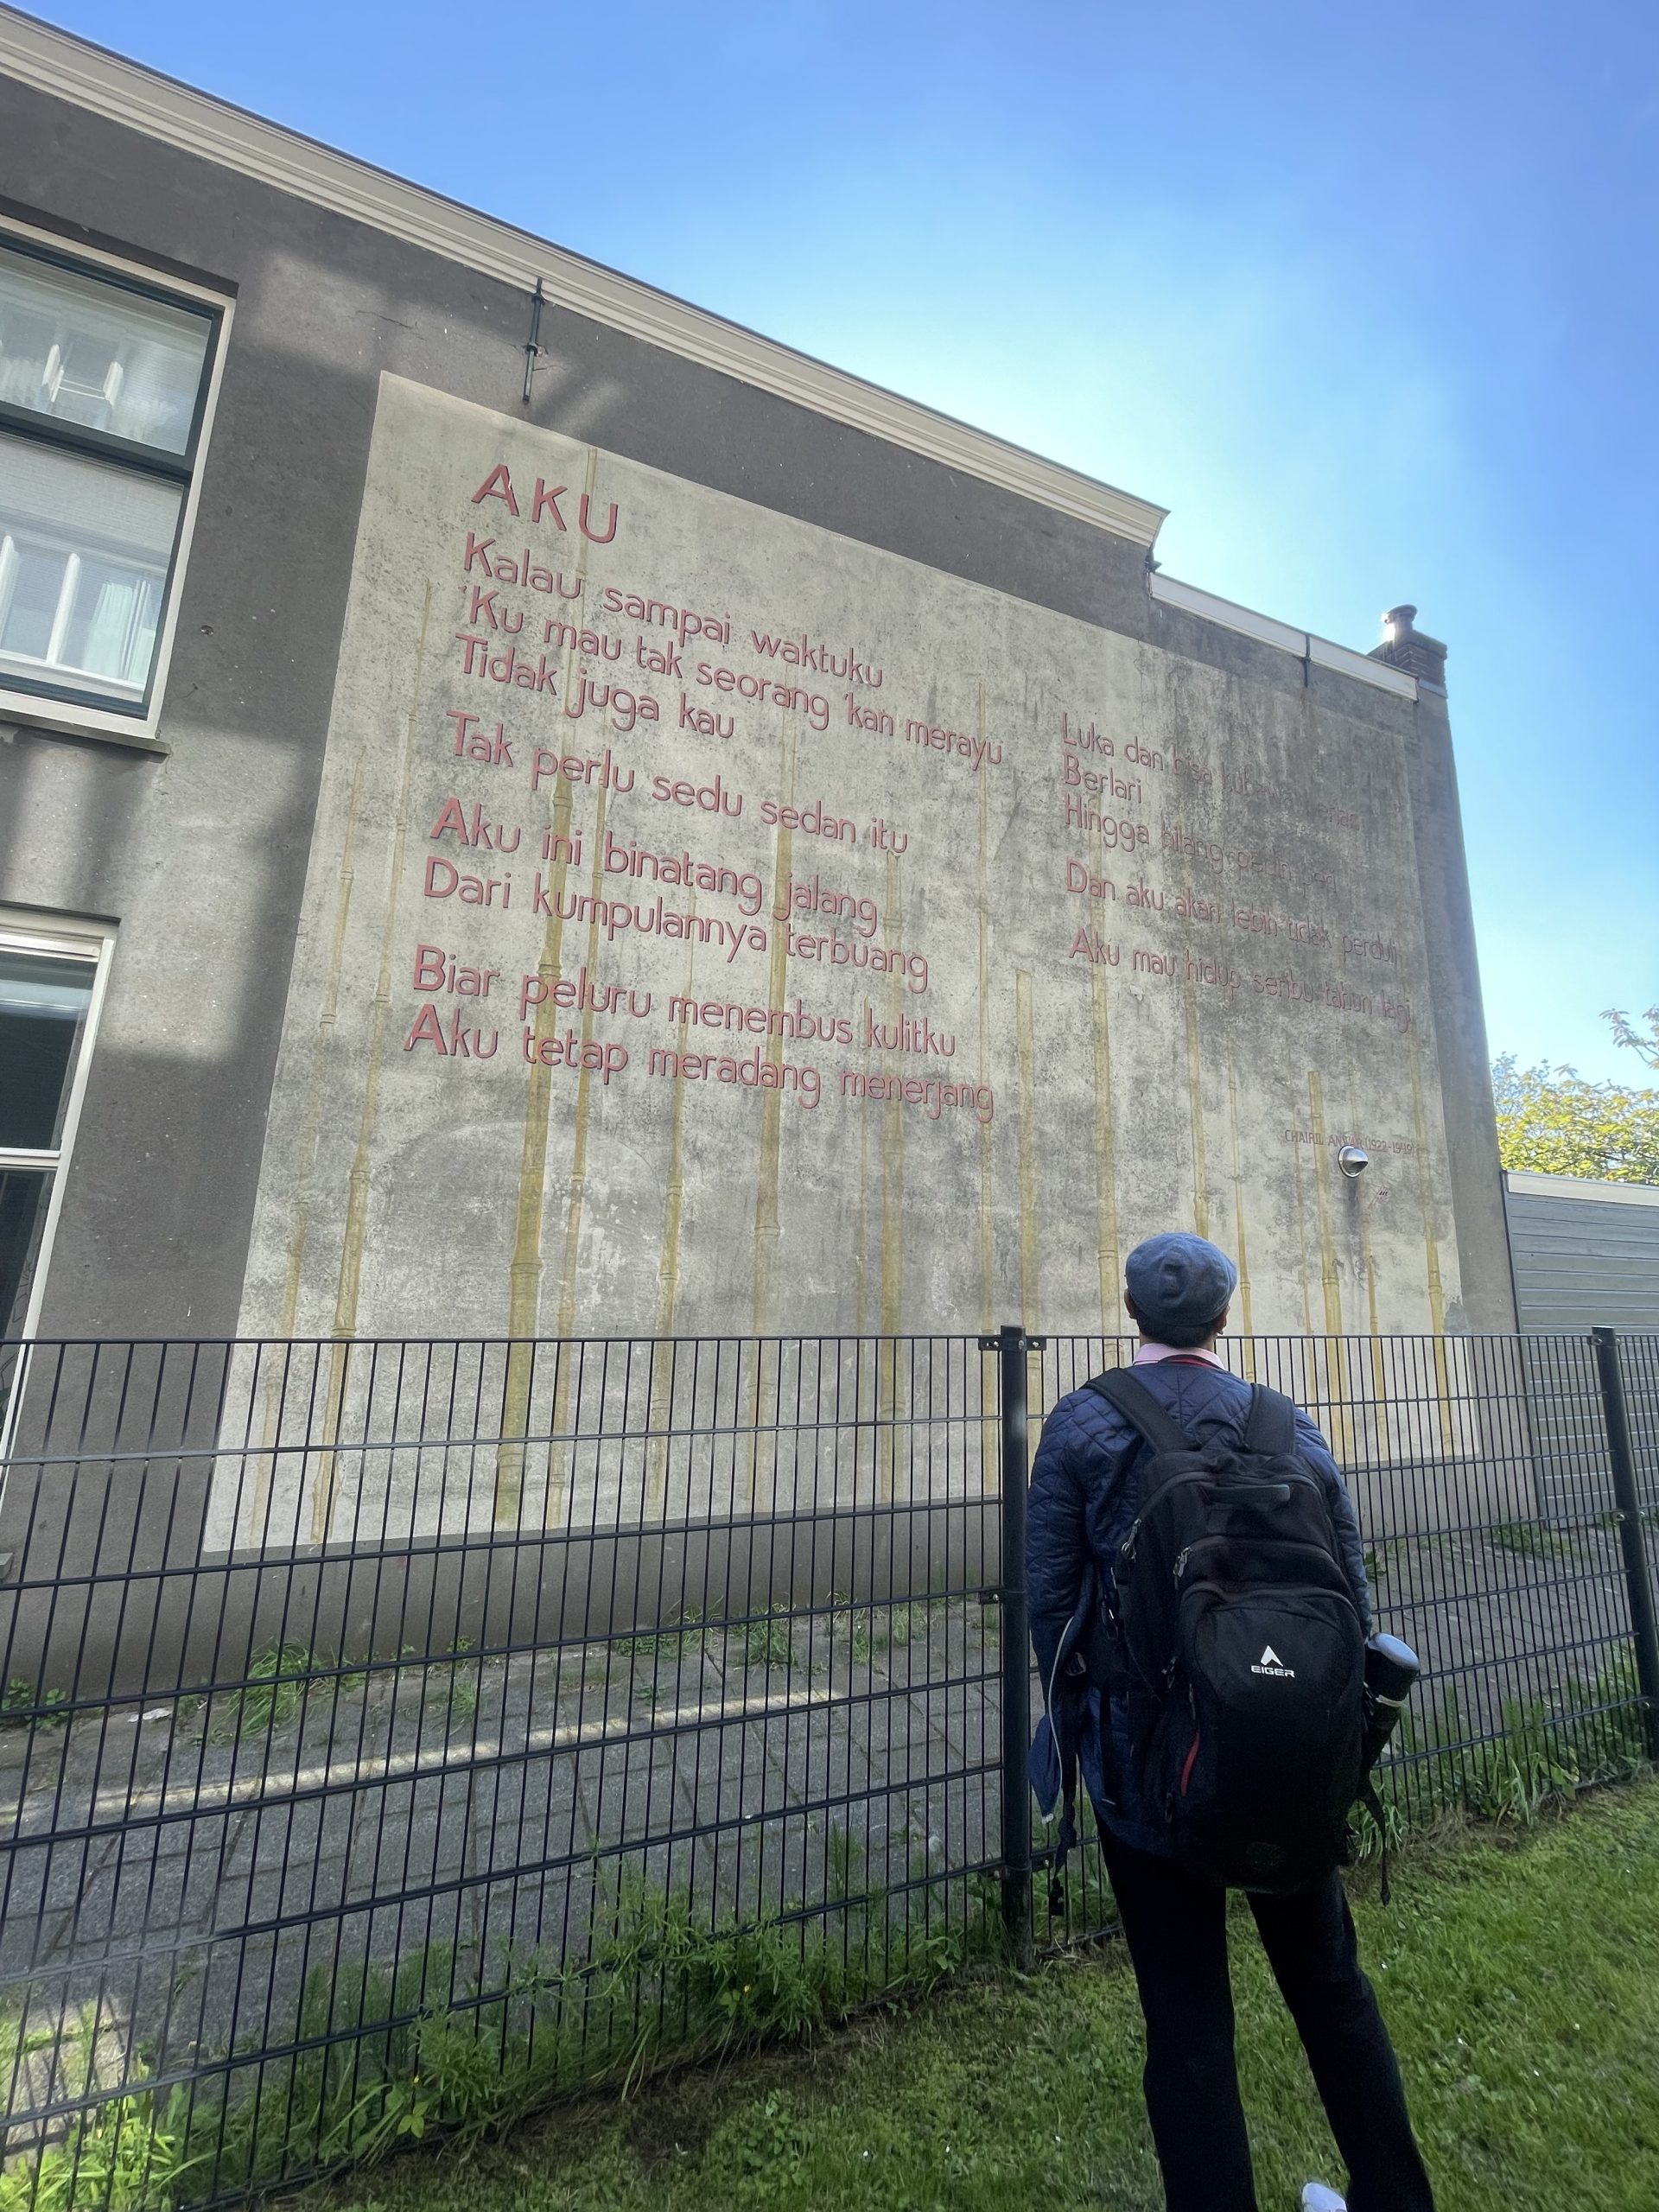 AKU
Kalau sampai waktuku
'Ku mau tak seorang 'kan merayu
Tidak juga kau
Tak perlu sedu sedan itu
Aku ini binatang jalang
Dari kumpulannya terbuang
Biar peluru menembus kulitku
Aku tetap meradang menerjang
Luka dan bisa kubawa
Berlari
Hingga hilang pedih peri
Dan aku akan lebih tidak perduli
Aku mau hidup seribu tahun lagi
CHAIRIL ANWAR (1922-1949)
EIGER